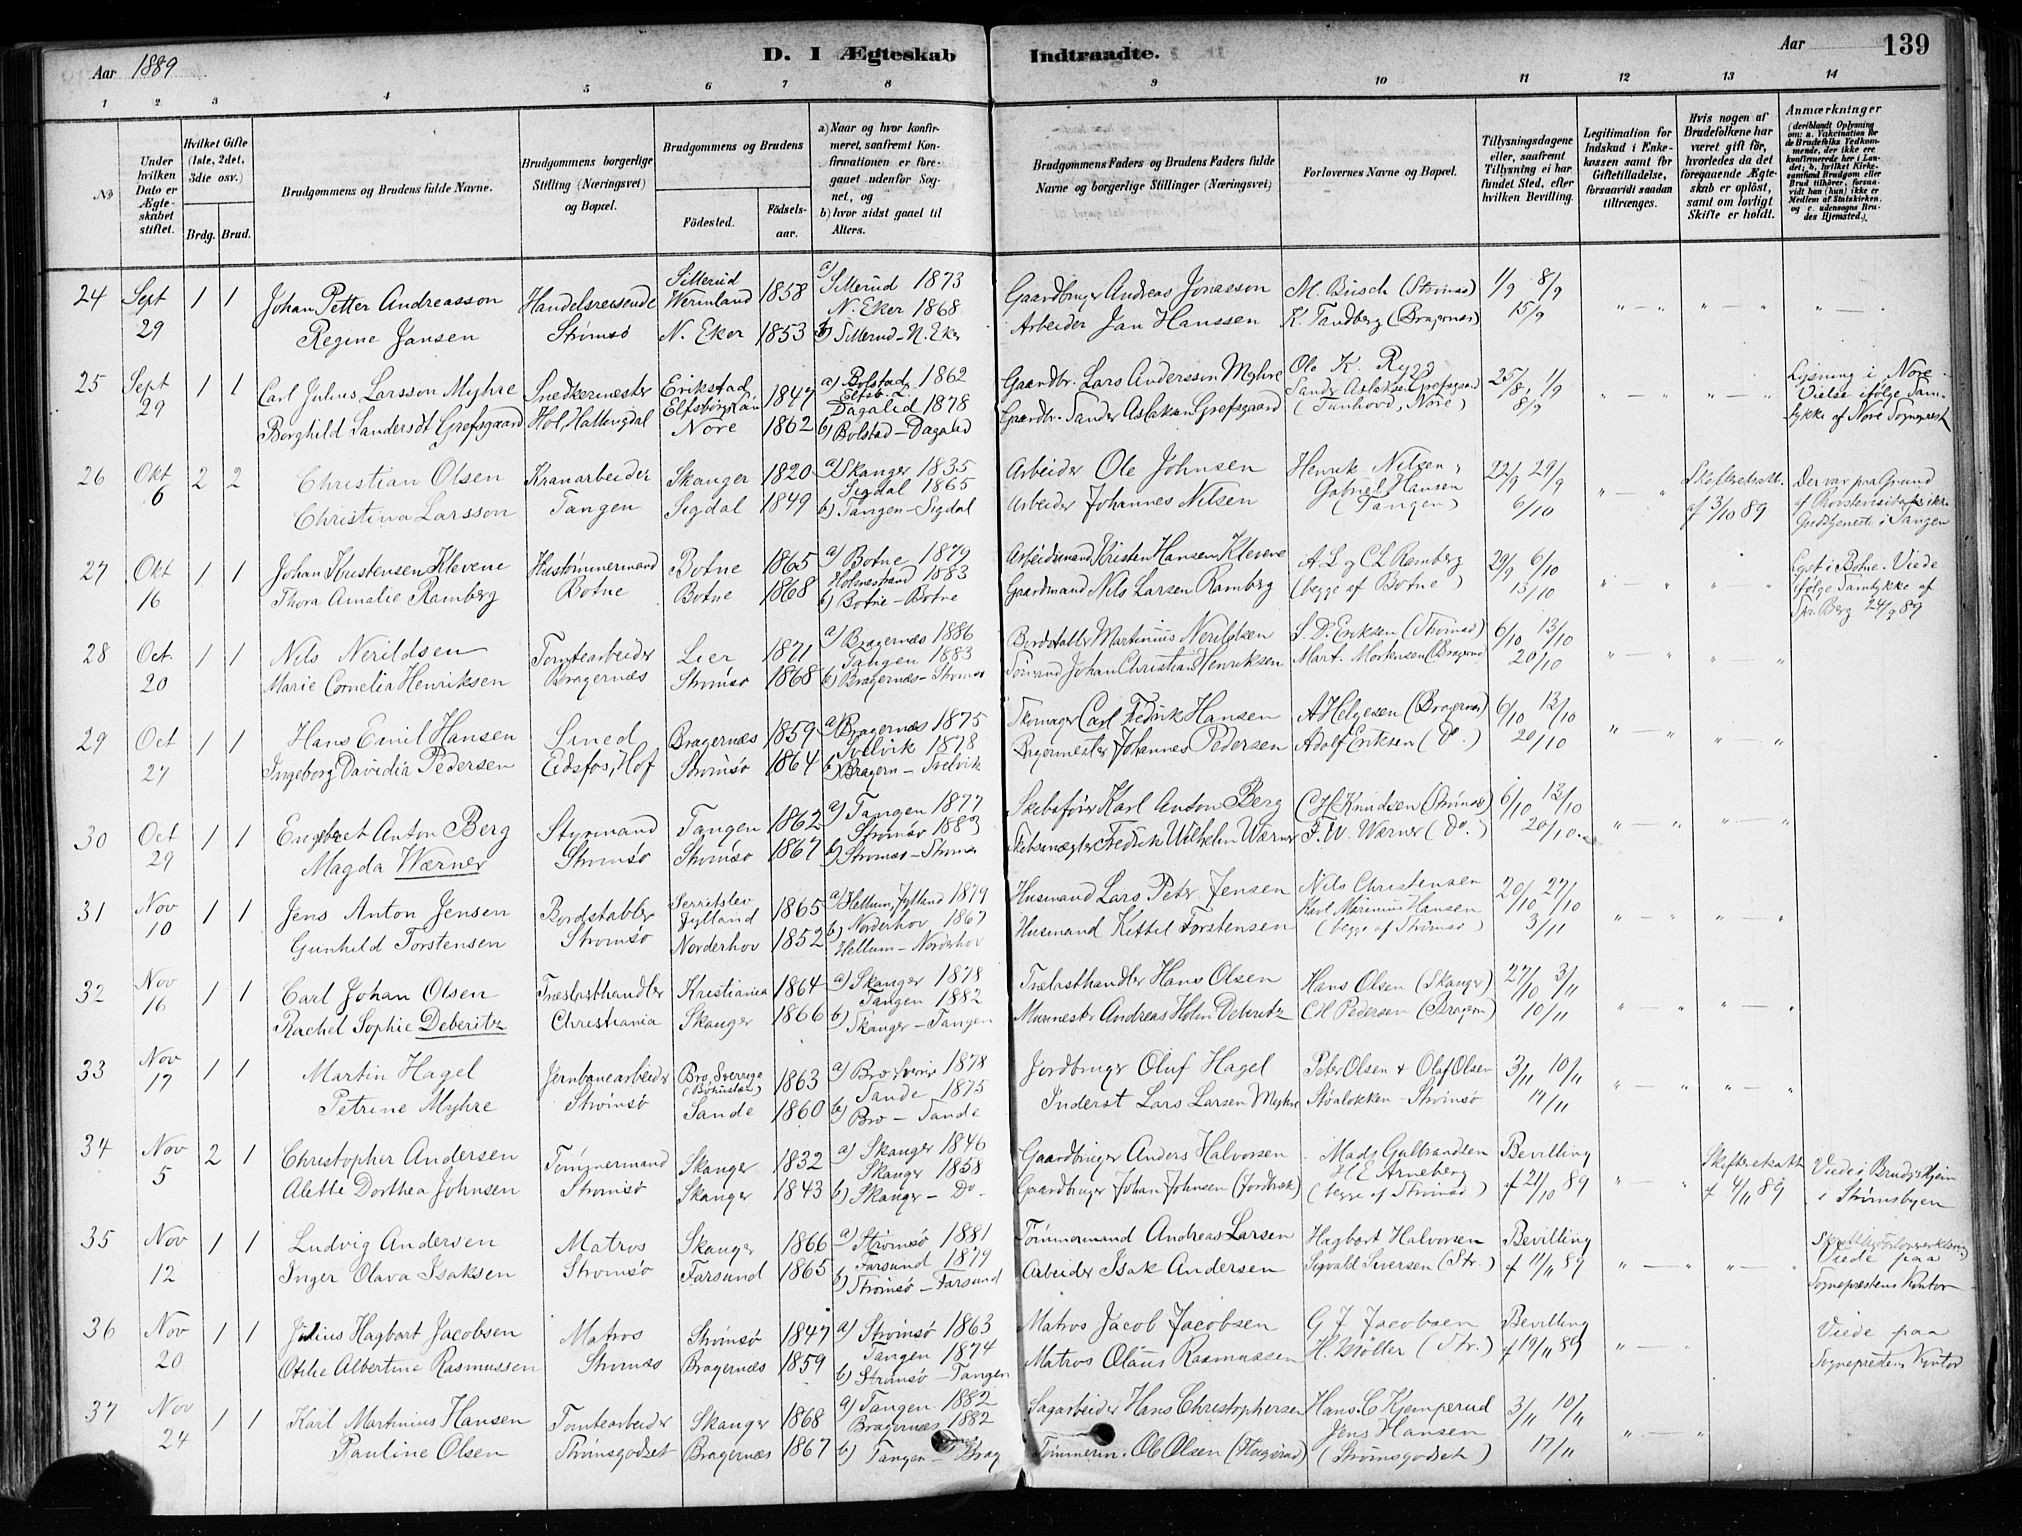 Aar 1889
D. I Ægteskab Indtraadte.
Aar
139
1 2 3 4 5 6 7 8 9 10 11 12 13 14
No
Under hvilken Dato er Ægteskabet stiftet.
Hvilket Gifte (1ste, 2det, 3die osv.)
Brdg. Brud.
Brudgommens og Brudens fulde Navne.
Brudgommens borgerlige Stilling (Næringsvei) og Bopæl.
Brudgommens og Brudens
Fødested.
Fødselsaar.
a) Naar og hvor konfirmeret, saafremt Konfirmationen er foregaaet udenfor Sognet, og
b) hvor sidst gaaet til Alters.
Brudgommens Faders og Brudens Faders fulde Navne og borgerlige Stillinger (Næringsvei)
Forlovernes Navne og Bopæl.
Tillysningsdagene eller, saafremt Tillysning ei har fundet Sted, efter hvilken Bevilling.
Legitimation for Indskud i Enkekassen samt for Giftetilladelse, forsaavidt saadan tiltrænges.
Hvis nogen af Brudefolkene har været gift før, hvorledes da det foregaaende Ægteskab er opløst, samt om lovligt Skifte er holdt.
Anmærkninger
(deriblandt Oplysning om: a. Vakcination for de Brudefolks Vedkommende, der ikke ere konfirmerede her i Landet; b. hvilket Kirkesamfund Brudgom eller Brud tilhører, forsaavidt han (hun) ikke er Medlem af Statskirken. og c. udensogns Brudes Hjemsted.)
24 Sept 29 1 1 Johan Petter Andreasson Handelsreisende Sillerud Wermland 1858 a) Sillerud 1873 Gaardbruger Andreas Jonasson M. Busch (Strømsø) 1/9 8/9
Regine Jansen Strømsø N. Eker 1853 N. Eker 1868 b) Sillerud - N. Eker Arbeider Jan Hanssen K. Tandberg (Bragernæs) 15/9
25 Sept 29 1 1 Carl Julius Larsson Myhre Snedkermester Erikstad Elfsborg Län 1847 a) Bolstad Elfsb. L. 1862 Gaardbr. Lars Andersson Myhre Ole K. Rygg 25/8 1/9 Lysning i Nore.
Borghild Sandersdt Grefsgaard Hol, Hallingdal Nore 1862 Dagalid 1878 b) Bolstad - Dagalid Gaardbr. Sander Aslaksen Grefsgaard Sander Aslaksen Grefsgaard (Tunhovd, Nore) 8/9 Vielse ifølge Samtykke af Nore Sognepræst
26 Okt 6 2 2 Christian Olsen Kranarbeider Skanger 1820 a) Skanger 1835 Arbeider Ole Johnsen Henrik Nilsen 22/9 29/9 Skifteretsatt. af 3/10 89
Christina Larsson Tangen Sigdal 1849 Sigdal 1865 b) Tangen - Sigdal Arbeider Johannes Nilsen Gabriel Hansen (Tangen) 6/10 Der var paa Grund af ikke Gudstjeneste i Tangen
27 Okt 16 1 1 Johan Kristensen Klevene Hustømmermand Botne 1865 a) Botne 1879 Arbeidsmand Kristen Hansen Klevene A L og C L Ramberg 29/9 6/10 Lyst i Botne. Viede
Thora Amalie Ramberg Botne Botne 1868 Holmestrand 1883 b) Botne - Botne Gaardmand Nils Larsen Ramberg (begge af Botne) 13/10 ifølge Samtykke af Spr. Berg 24/9 89
28 Oct. 20 1 1 Nils Nerildsen Tomtearbeider Lier 1871 a) Bragernæs 1886 Bordstabler Martinius Nerildsen S. D. Eriksen (Strømsø) 6/10 13/10
Marie Cornelia Henriksen Bragernæs Strømsø 1868 Tangen 1883 b) Bragernæs - Strømsø Sømand Johan Christian Henriksen Mart. Mortensen (Bragernæs) 20/10
29 Oct 27 1 1 Hans Emil Hansen Smed Bragernæs 1859 a) Bragernæs 1875 Skomager Carl Fredrik Hansen A Helgesen (Bragernæs) 6/10 13/10
Ingeborg Davidia Pedersen Eidsfos, Hof Strømsø 1864 Svelvik 1878 b) Bragern - Svelvik Bagermester Johannes Pedersen Adolf Eriksen (Do.) 20/10
30 Oct 29 1 1 Engebret Anton Berg Styrmand Tangen 1862 a) Tangen 1877 Skibsfører Karl Anton Berg C. H. Knudsen (Strømsø) 6/10 13/10
Magda Wærner Strømsø Strømsø 1867 Strømsø 1883 b) Strømsø - Strømsø Skibsmægler Fredrik Wilhelm Wærner F. W. Wærner (Do.) 20/10
31 Nov 10 1 1 Jens Anton Jensen Bordstabler Serritslev Jylland 1865 a) Hellum, Jylland 1879 Husmand Lars Peter Jensen Nils Christensen 20/10 27/10
Gunhild Torstensen Strømsø Norderhov 1852 Norderhov 1867 b) Hellum - Norderhov Husmand Kittil Torstensen Karl Marinius Hansen (begge af Strømsø) 3/11
32 Nov 16 1 1 Carl Johan Olsen Trælasthandler Kristiania 1864 a) Skanger 1878 Trælasthandler Hans Olsen Hans Olsen (Skanger) 27/10 3/11
Rachel Sophie Deberitz Christiania Skanger 1866 Tangen 1882 b) Skanger - Tangen Murmester Andreas Holm Deberitz C H Pedersen (Bragern) 10/11
33 Nov 17 1 1 Martin Hagel Jernbanearbeider Bro, Sverrige (Bohuslän) 1863 a) Bro Sverrig 1878 Jordbruger Oluf Hagel Peter Olsen & Olaf Olsen 3/11 10/11
Petrine Myhre Strømsø Sande 1860 Sande 1875 b) Bro - Sande Inderst Lars Larsen Myhre Støaløkken Strømsø 17/11
34 Nov 5 2 1 Christopher Andersen Tømmermand Skanger 1832 a) Skanger 1846 Gaardbruger Anders Halvorsen Mads Gulbrandsen Bevilling Skifteretsatt. f 4/11 89 Viede i Brudgs Hjem
Alette Dorthea Johnsen Strømsø Skanger 1843 Skanger 1858 b) Skanger - Do. Gaardbruger Johan Johnsen (Jordbræk) H E Arneberg (begge af Strømsø) af 21/10 89 i Strømsbyen
35 Nov 12 1 1 Ludvig Andersen Matros Skanger 1866 a) Strømsø 1881 Tømmermand Andreas Larsen Hagbart Halvorsen Bevilling Skriftlig Forlovererklæring
Inger Olava Isaksen Strømsø Farsund 1865 Farsund 1879 b) Strømsø - Farsund Arbeider Isak Andersen Sigvald Siversen (Str.) af 11/11 89 Viede paa Sognepræstens Kontor
36 Nov 20 1 1 Julius Hagbart Jacobsen Matros Strømsø 1847 a) Strømsø 1863 Matros Jacob Jacobsen G J Jacobsen Bevilling Viede paa
Otilie Albertine Rasmussen Strømsø Bragernæs 1859 Tangen 1874 b) Strømsø - Tangen Matros Olaus Rasmussen H. Møller (Str.) af 19/11 89 Sognepræstens Kontor
37 Nov 24 1 1 Karl Martinius Hansen Tomtearbeider Skanger 1868 a) Tangen 1882 Sagarbeider Hans Christophersen Hans C Kjemperud 3/11 10/11
Pauline Olsen Strømsgodset Bragernæs 1867 Bragernæs 1882 b) Tangen - Brag Tømmerm. Ole Olsen Jens Hansen (Strømsgodset) 17/11